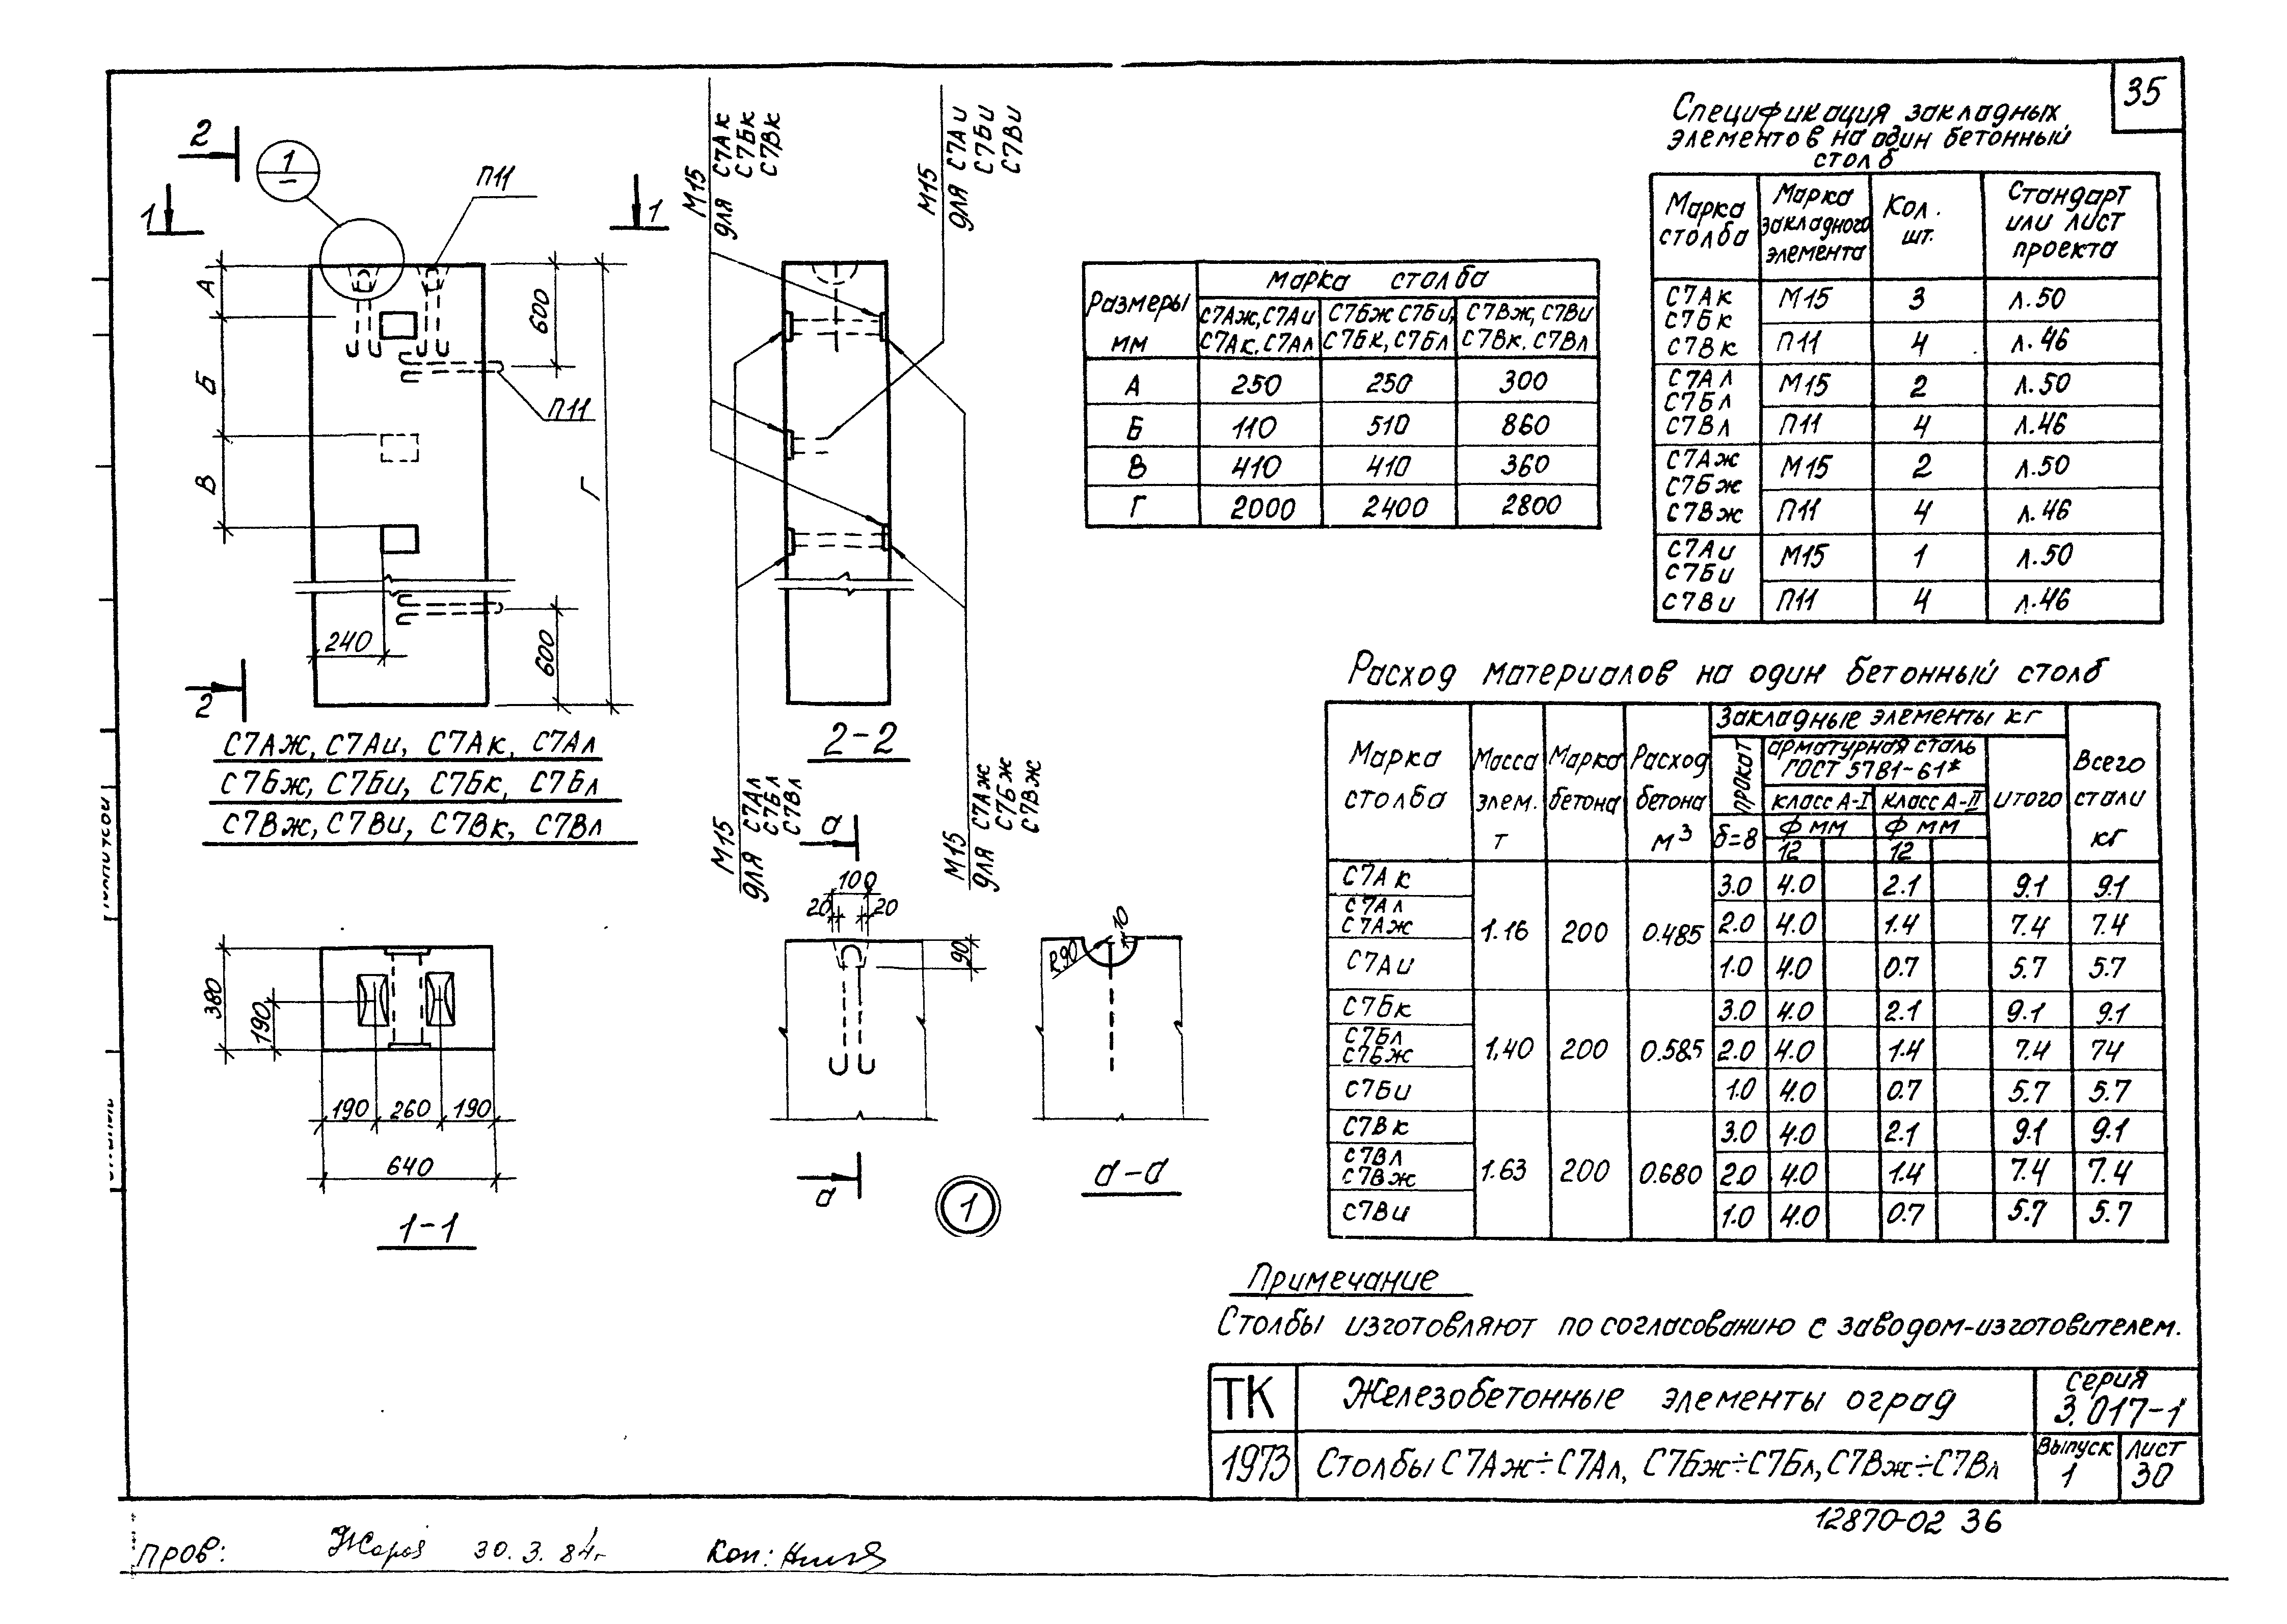 35
2
1
—
1
1
П11
А
Б
В
600
П11
Г
240
600
2
С7Аж, С7Аи, С7Ак, С7Ал
С7Бж, С7Би, С7Бк, С7Бл
С7Вж, С7Ви, С7Вк, С7Вл
М15
для С7Ак
С7Бк
С7Вк
М15
для С7Аи
С7Би
С7Ви
2-2
М15
для С7Ал
С7Бл
С7Вл
М15
для С7Аж
С7Бж
С7Вж
380
190
190 260 190
640
1-1
а
100
20 20
90
а
1
R90
10
а-а
Размеры мм
марка столба
С7Аж, С7Аи С7Ак, С7Ал
С7Бж С7Би, С7Бк, С7Бл
С7Вж, С7Ви С7Вк, С7Вл
А 250 250 300
Б 110 510 860
В 410 410 360
Г 2000 2400 2800
Спецификация закладных
элементов на один бетонный
столб
Марка столба
Марка закладного элемента
Кол. шт.
Стандарт или лист проекта
С7Ак
С7Бк
С7Вк
М15 3 л.50
П11 4 л.46
С7Ал
С7Бл
С7Вл
М15 2 л.50
П11 4 л.46
С7Аж
С7Бж
С7Вж
М15 2 л.50
П11 4 л.46
С7Аи
С7Би
С7Ви
М15 1 л.50
П11 4 л.46
Расход материалов на один бетонный столб
Марка столба
Масса элем. т
Марка бетона
Расход бетона м³
Закладные элементы кг
прокат
δ=8
арматурная сталь
ГОСТ 5781-61*
класс А-I класс А-II
Ф мм Ф мм
12 12
итого
Всего стали кг
С7Ак 3.0 4.0 2.1 9.1 9.1
С7Ал
С7Аж 1.16 200 0.485 2.0 4.0 1.4 7.4 7.4
С7Аи 1.0 4.0 0.7 5.7 5.7
С7Бк 3.0 4.0 2.1 9.1 9.1
С7Бл
С7Бж 1,40 200 0.585 2.0 4.0 1.4 7.4 74
С7Би 1.0 4.0 0.7 5.7 5.7
С7Вк 3.0 4.0 2.1 9.1 9.1
С7Вл
С7Вж 1.63 200 0.680 2.0 4.0 1.4 7.4 7.4
С7Ви 1.0 4.0 0.7 5.7 5.7
Примечание
Столбы изготовляют по согласованию с заводом-изготовителем.
ТК
Железобетонные элементы оград
серия
3.017-1
1973
Столбы С7Аж÷С7Ал, С7Бж÷С7Бл, С7Вж÷С7Вл
Выпуск
1
Лист
30
12870-02 36
пров: 30.3.84г Коп: